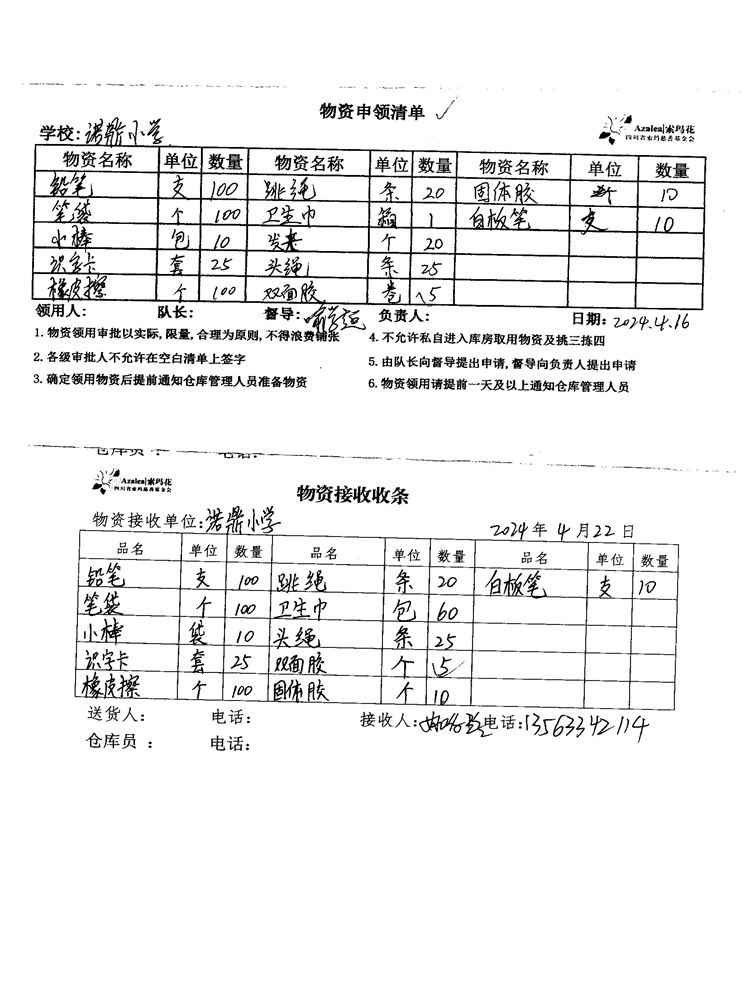 物资申领清单 ✓
Azalea|索玛花
四川省索玛慈善基金会
学校：诺鼎小学
物资名称 单位 数量 物资名称 单位 数量 物资名称 单位 数量
铅笔 支 100 跳绳 条 20 固体胶 个 10
笔袋 个 100 卫生巾 箱 1 白板笔 支 10
小棒 包 10 发夹 个 20
识字卡 套 25 头绳 条 25
橡皮擦 个 100 双面胶 卷 5
领用人： 队长： 督导： 负责人： 日期：2024.4.16
1.物资领用审批以实际,限量,合理为原则,不得浪费铺张 4.不允许私自进入库房取用物资及挑三拣四
2.各级审批人不允许在空白清单上签字 5.由队长向督导提出申请,督导向负责人提出申请
3.确定领用物资后提前通知仓库管理人员准备物资 6.物资领用请提前一天及以上通知仓库管理人员
仓库员： 电话：
Azalea|索玛花
四川省索玛慈善基金会
物资接收收条
物资接收单位：诺鼎小学 2024年4月22日
品名 单位 数量 品名 单位 数量 品名 单位 数量
铅笔 支 100 跳绳 条 20 白板笔 支 10
笔袋 个 100 卫生巾 包 60
小棒 袋 10 头绳 条 25
识字卡 套 25 双面胶 个 5
橡皮擦 个 100 固体胶 个 10
送货人： 电话： 接收人： 电话：13563342114
仓库员： 电话：